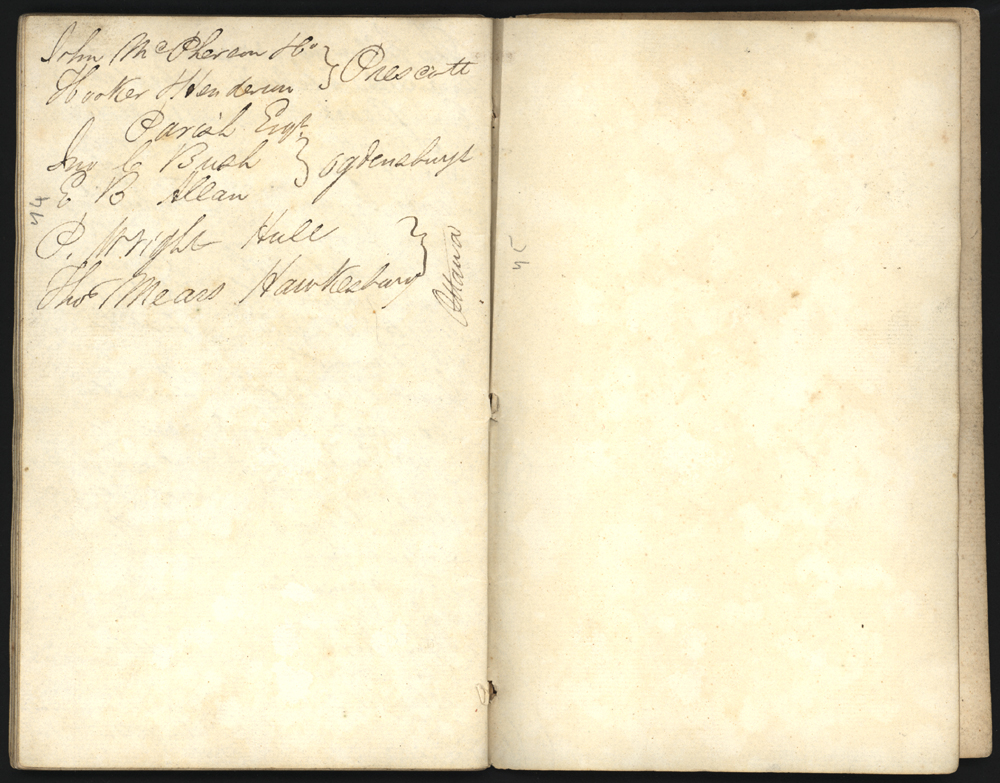 John McPherson Ho } Prescott
Hooker Henderson
Parish Esqr
Jno C Bush } Ogdensburgh
E B Allan
P. Wright Hull }
Thos Mears Hawkesbury
Ottawa
44
45